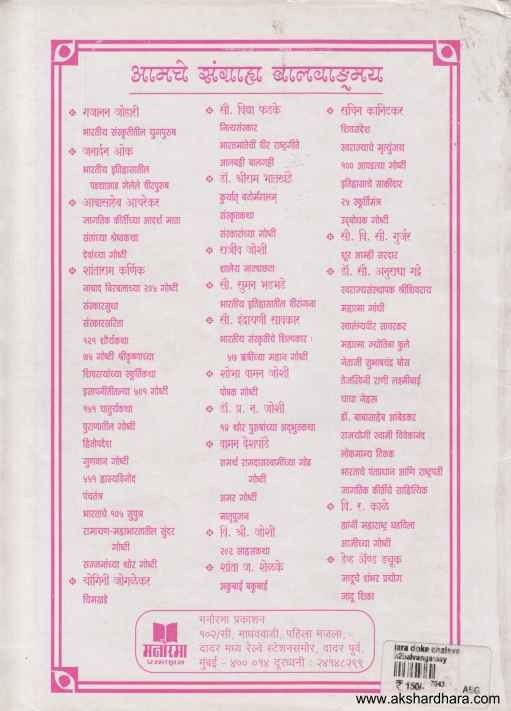 आमचे संग्राह्य बालवाङ्मय
गजानन जोहारी
भारतीय संस्कृतीतील युगपुरुष
जनार्दन ओक
भारतीय इतिहासातील
पडद्याआड गेलेले वीरपुरुष
आबासाहेब आचरेकर
जागतिक कीर्तीच्या आदर्श माता
संतांच्या श्रेष्ठकथा
देवांच्या गोष्टी
शांताराम कर्णिक
नाबाद बिरबलाच्या २०५ गोष्टी
संस्कारसुधा
संस्कारसरिता
१२१ शौर्यकथा
७५ गोष्टी श्रीकृष्णाच्या
शिवरायांच्या स्फूर्तिकथा
इसापनीतीतल्या ५०१ गोष्टी
१५१ चातुर्यकथा
पुराणातील गोष्टी
हितोपदेश
गुणवान गोष्टी
५५१ हास्यविनोद
पंचतंत्र
भारताचे १०५ सुपुत्र
रामायण-महाभारतातील सुंदर
गोष्टी
सज्जनांच्या थोर गोष्टी
योगिनी जोगळेकर
चिमखडे
सौ. विद्या फडके
नित्यसंस्कार
भारतमातेची वीर राष्ट्रगीते
आनंदी बालगाणी
डॉ. श्रीराम भातखंडे
कुर्यात् बटोर्मंगलम्
संस्कृतकथा
संस्काराच्या गोष्टी
राजीव जोशी
शालेय नाट्यछटा
सौ. सुमन भडभडे
भारतीय इतिहासातील वीरांगना
सौ. इंद्रायणी सावकार
भारतीय संस्कृतीचे शिल्पकार :
५७ ऋषींच्या महान गोष्टी
शोभा वामन जोशी
पोषक गोष्टी
डॉ. प्र. न. जोशी
१७ थोर पुरुषांच्या अद्भुतकथा
वामन देशपांडे
समर्थ रामदासस्वामींच्या गोड
गोष्टी
अमर गोष्टी
मातृपूजन
वि. श्री. जोशी
२०२ साहसकथा
शांता ज. शेळके
अकुबाई बकुबाई
सचिन कानिटकर
शिवसंदेश
स्वराज्याचे मृत्युंजय
१०० आवडत्या गोष्टी
इतिहासाचे साक्षीदार
२५ स्फूर्तिमंत्र
उद्बोधक गोष्टी
सौ. वि. सी. गुर्जर
शूर आम्ही सरदार
डॉ. सौ. अनुराधा गद्रे
स्वराज्यसंस्थापक श्रीशिवराय
महात्मा गांधी
स्वातंत्र्यवीर सावरकर
महात्मा ज्योतिबा फुले
नेताजी सुभाषचंद्र बोस
तेजस्विनी राणी लक्ष्मीबाई
चाचा नेहरू
डॉ. बाबासाहेब आंबेडकर
राजयोगी स्वामी विवेकानंद
लोकमान्य टिळक
भारताचे पंतप्रधान आणि राष्ट्रपती
जागतिक कीर्तीचे साहित्यिक
वि. र. काळे
ह्यांनी महाराष्ट्र घडविला
आजीच्या गोष्टी
डेव्ह अँण्ड ड्यूक
जादूचे शंभर प्रयोग
जादू शिका
मनोरमा
प्रकाशन
मनोरमा प्रकाशन
१०२/सी, माधववाडी, पहिला मजला,
दादर मध्य रेल्वे स्टेशनसमोर, दादर पूर्व,
मुंबई - ४०० ०१४ दूरध्वनी : २४१४८२९९
₹ 150/- 7043
www.akshardhara.com